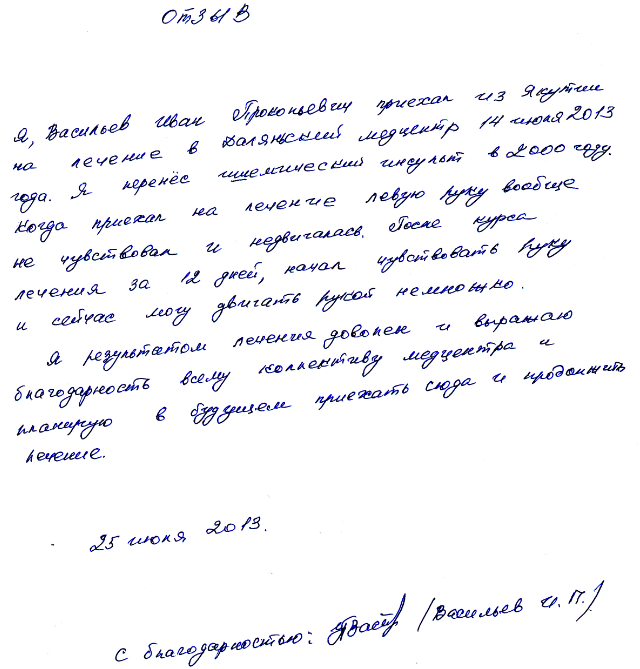 Отзыв
Я, Васильев Иван Прокопьевич приехал из Якутии
на лечение в Даляньский медцентр 14 июня 2013
года. Я перенёс ишемический инсульт в 2000 году.
Когда приехал на лечение левую руку вообще
не чувствовал и недвигалась. После курса
лечения за 12 дней, начал чувствовать руку
и сейчас могу двигать рукой немножко.
Я результатом лечения доволен и выражаю
благодарность всему коллективу медцентра и
планирую в будущем приехать сюда и продолжить
лечение.
25 июня 2013.
с благодарностью: (Васильев И. П.)